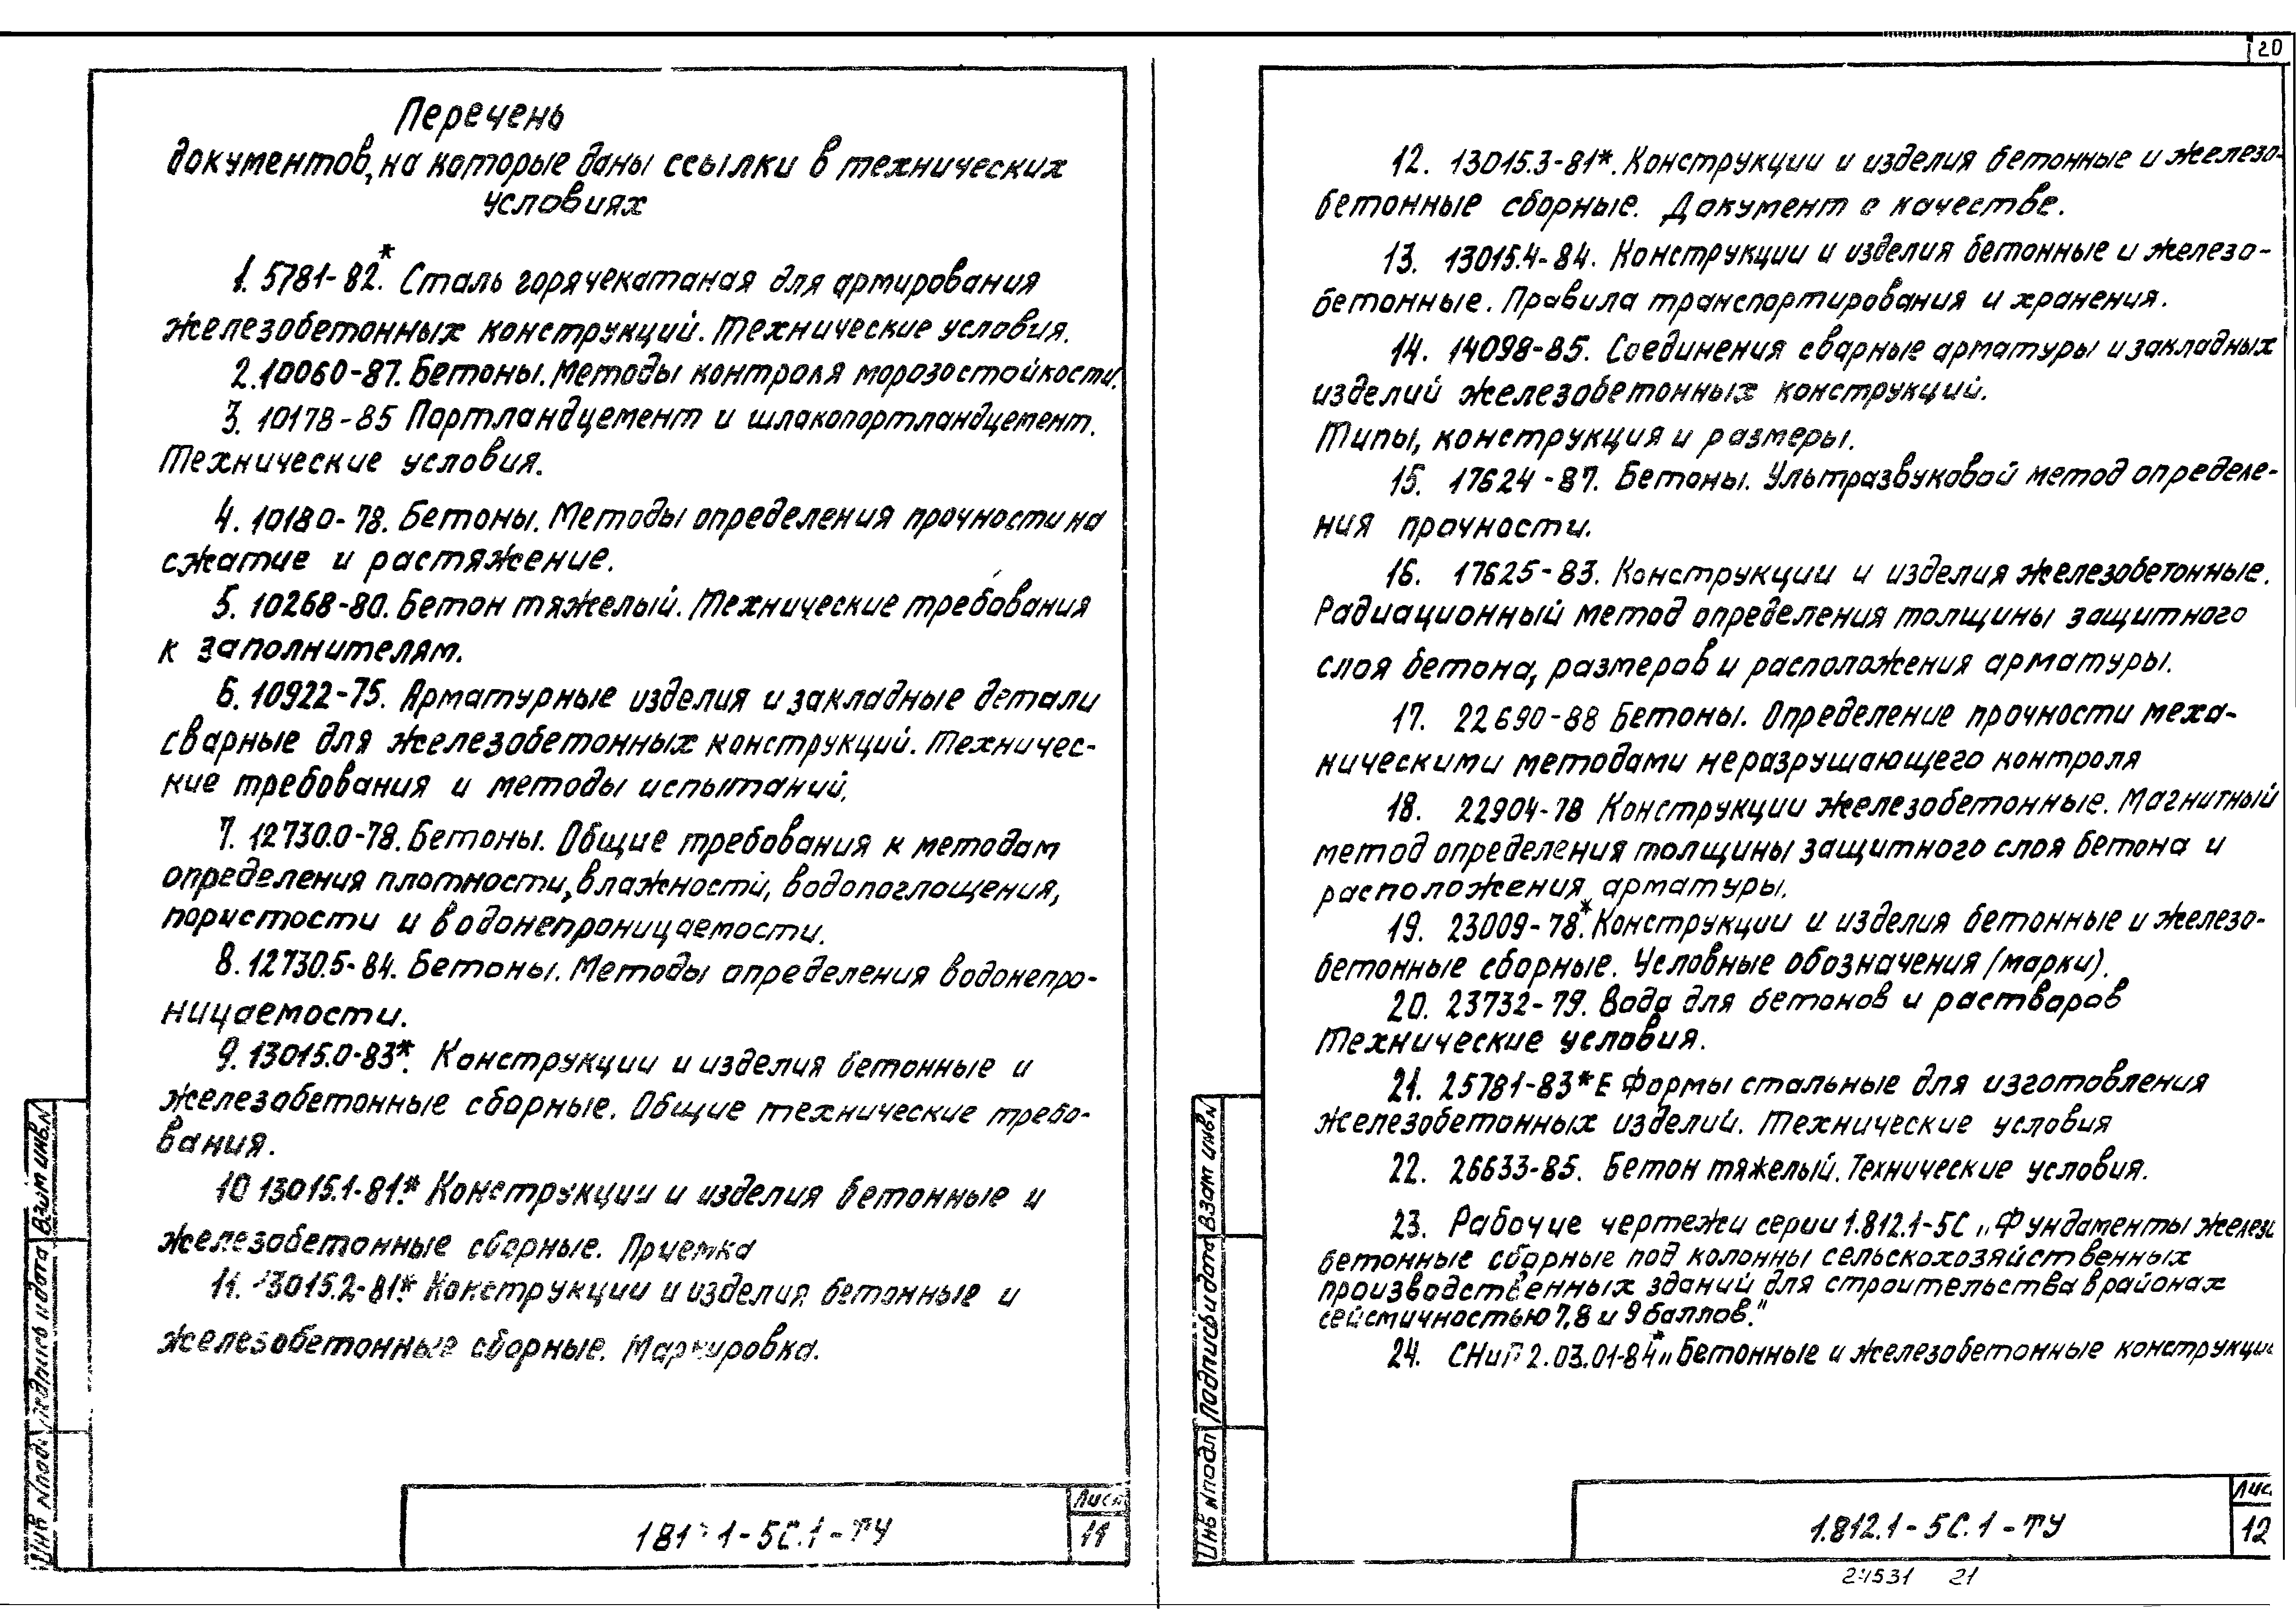 20
Перечень
документов, на которые даны ссылки в технических
условиях
1. 5781-82*. Сталь горячекатаная для армирования
железобетонных конструкций. Технические условия.
2. 10060-87. Бетоны. Методы контроля морозостойкости.
3. 10178-85 Портландцемент и шлакопортландцемент.
Технические условия.
4. 10180-78. Бетоны. Методы определения прочности на
сжатие и растяжение.
5. 10268-80. Бетон тяжелый. Технические требования
к заполнителям.
6. 10922-75. Арматурные изделия и закладные детали
сварные для железобетонных конструкций. Техничес-
кие требования и методы испытаний.
7. 12730.0-78. Бетоны. Общие требования к методам
определения плотности, влажности, водопоглощения,
пористости и водонепроницаемости.
8. 12730.5-84. Бетоны. Методы определения водонепро-
ницаемости.
9. 13015.0-83*. Конструкции и изделия бетонные и
железобетонные сборные. Общие технические требо-
вания.
10 13015.1-81*. Конструкции и изделия бетонные и
железобетонные сборные. Приемка
11. 13015.2-81*. Конструкции и изделия бетонные и
железобетонные сборные. Маркировка.
Инв № подл Подпись и дата Взам инв. №
181 1-5С.1-ТУ
Лист
11
12. 13015.3-81*. Конструкции и изделия бетонные и железо-
бетонные сборные. Документ о качестве.
13. 13015.4-84. Конструкции и изделия бетонные и железо-
бетонные. Правила транспортирования и хранения.
14. 14098-85. Соединения сварные арматуры и закладных
изделий железобетонных конструкций.
Типы, конструкция и размеры.
15. 17624-87. Бетоны. Ультразвуковой метод определе-
ния прочности.
16. 17625-83. Конструкции и изделия железобетонные.
Радиационный метод определения толщины защитного
слоя бетона, размеров и расположения арматуры.
17. 22690-88 Бетоны. Определение прочности меха-
ническими методами неразрушающего контроля
18. 22904-78 Конструкции железобетонные. Магнитный
метод определения толщины защитного слоя бетона и
расположения арматуры.
19. 23009-78*. Конструкции и изделия бетонные и железо-
бетонные сборные. Условные обозначения (марки).
20. 23732-79. Вода для бетонов и растворов
Технические условия.
21. 25781-83*Е Формы стальные для изготовления
железобетонных изделий. Технические условия
22. 26633-85. Бетон тяжелый. Технические условия.
23. Рабочие чертежи серии 1.812.1-5С „Фундаменты железо
бетонные сборные под колонны сельскохозяйственных
производственных зданий для строительства в районах
сейсмичностью 7,8 и 9 баллов."
24. СНиП 2.03.01-84* „Бетонные и железобетонные конструкции
Инв № подл Подпись и дата Взам инв. №
1.812.1-5С.1-ТУ
Лис
12
24531 21